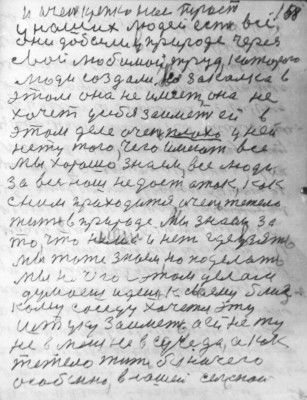 и очен крепко нас просят 68
у наших людей есть всё
они добились в природе через
свой любимой труд, которого
люди создали, закалка в
этом она не имеет, она не
хочет у себя заиметь её в
этом деле очен плохо у ней
нету того, чего имеют все
мы хорошо знаем, все люди
за всё наш недостаток, как
с ним приходится, очен тежело
жить в природе мы знаем за
то, что нет и нет где взять
мы тоже знаем но поделать
мы ничего с этом делам
думаем идем к своему близ
кому соседу хочется эту
штуку заиметь а её нету
не в мене не в суседа, а как
тежело жить без ничего
особенно, в нашей сельской